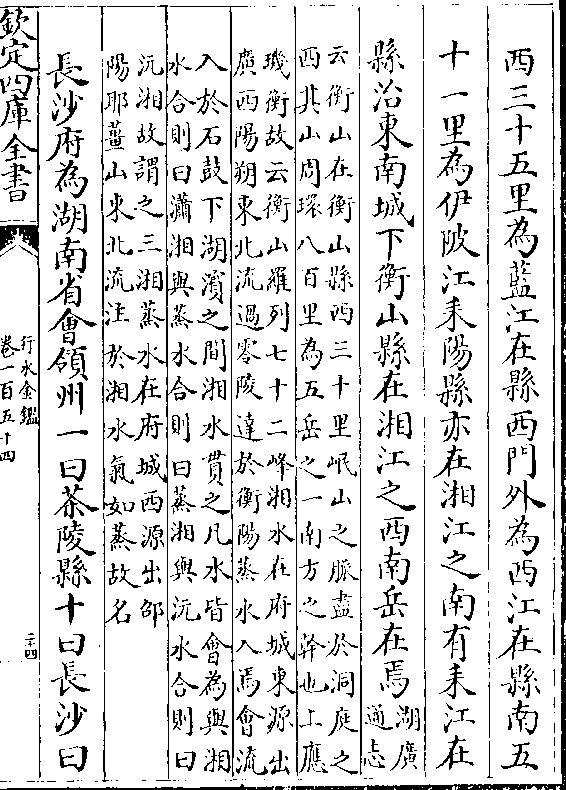 西三十五里為藍江在縣西門外為西江在縣南五
十一里為伊陂江耒陽縣亦在湘江之南有耒江在
縣治東南城下衡山縣在湘江之西南岳在焉湖廣
通志
云衡山在衡山縣西三十里岷山之脈盡於洞庭之
西其山周環八百里為五岳之一南方之幹也上應
璣衡故云衡山羅列七十二峰湘水在府城東源出
廣西陽朔東北流過零陵達於衡陽蒸水入焉會流
入於石鼓下湖濵之間湘水貫之凡水皆會為與湘
水合則曰瀟湘與蒸水合則曰蒸湘與沅水合則曰
沅湘故謂之三湘蒸水在府城西源出邵
陽耶薑山東北流注於湘水氣如蒸故名
長沙府為湖南省會領州一曰茶陵縣十曰長沙曰
欽定四庫全書
行水金鑑
卷一百五十四
二十四